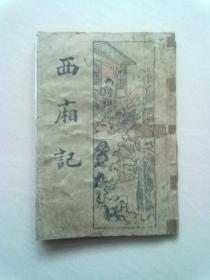 西廂記